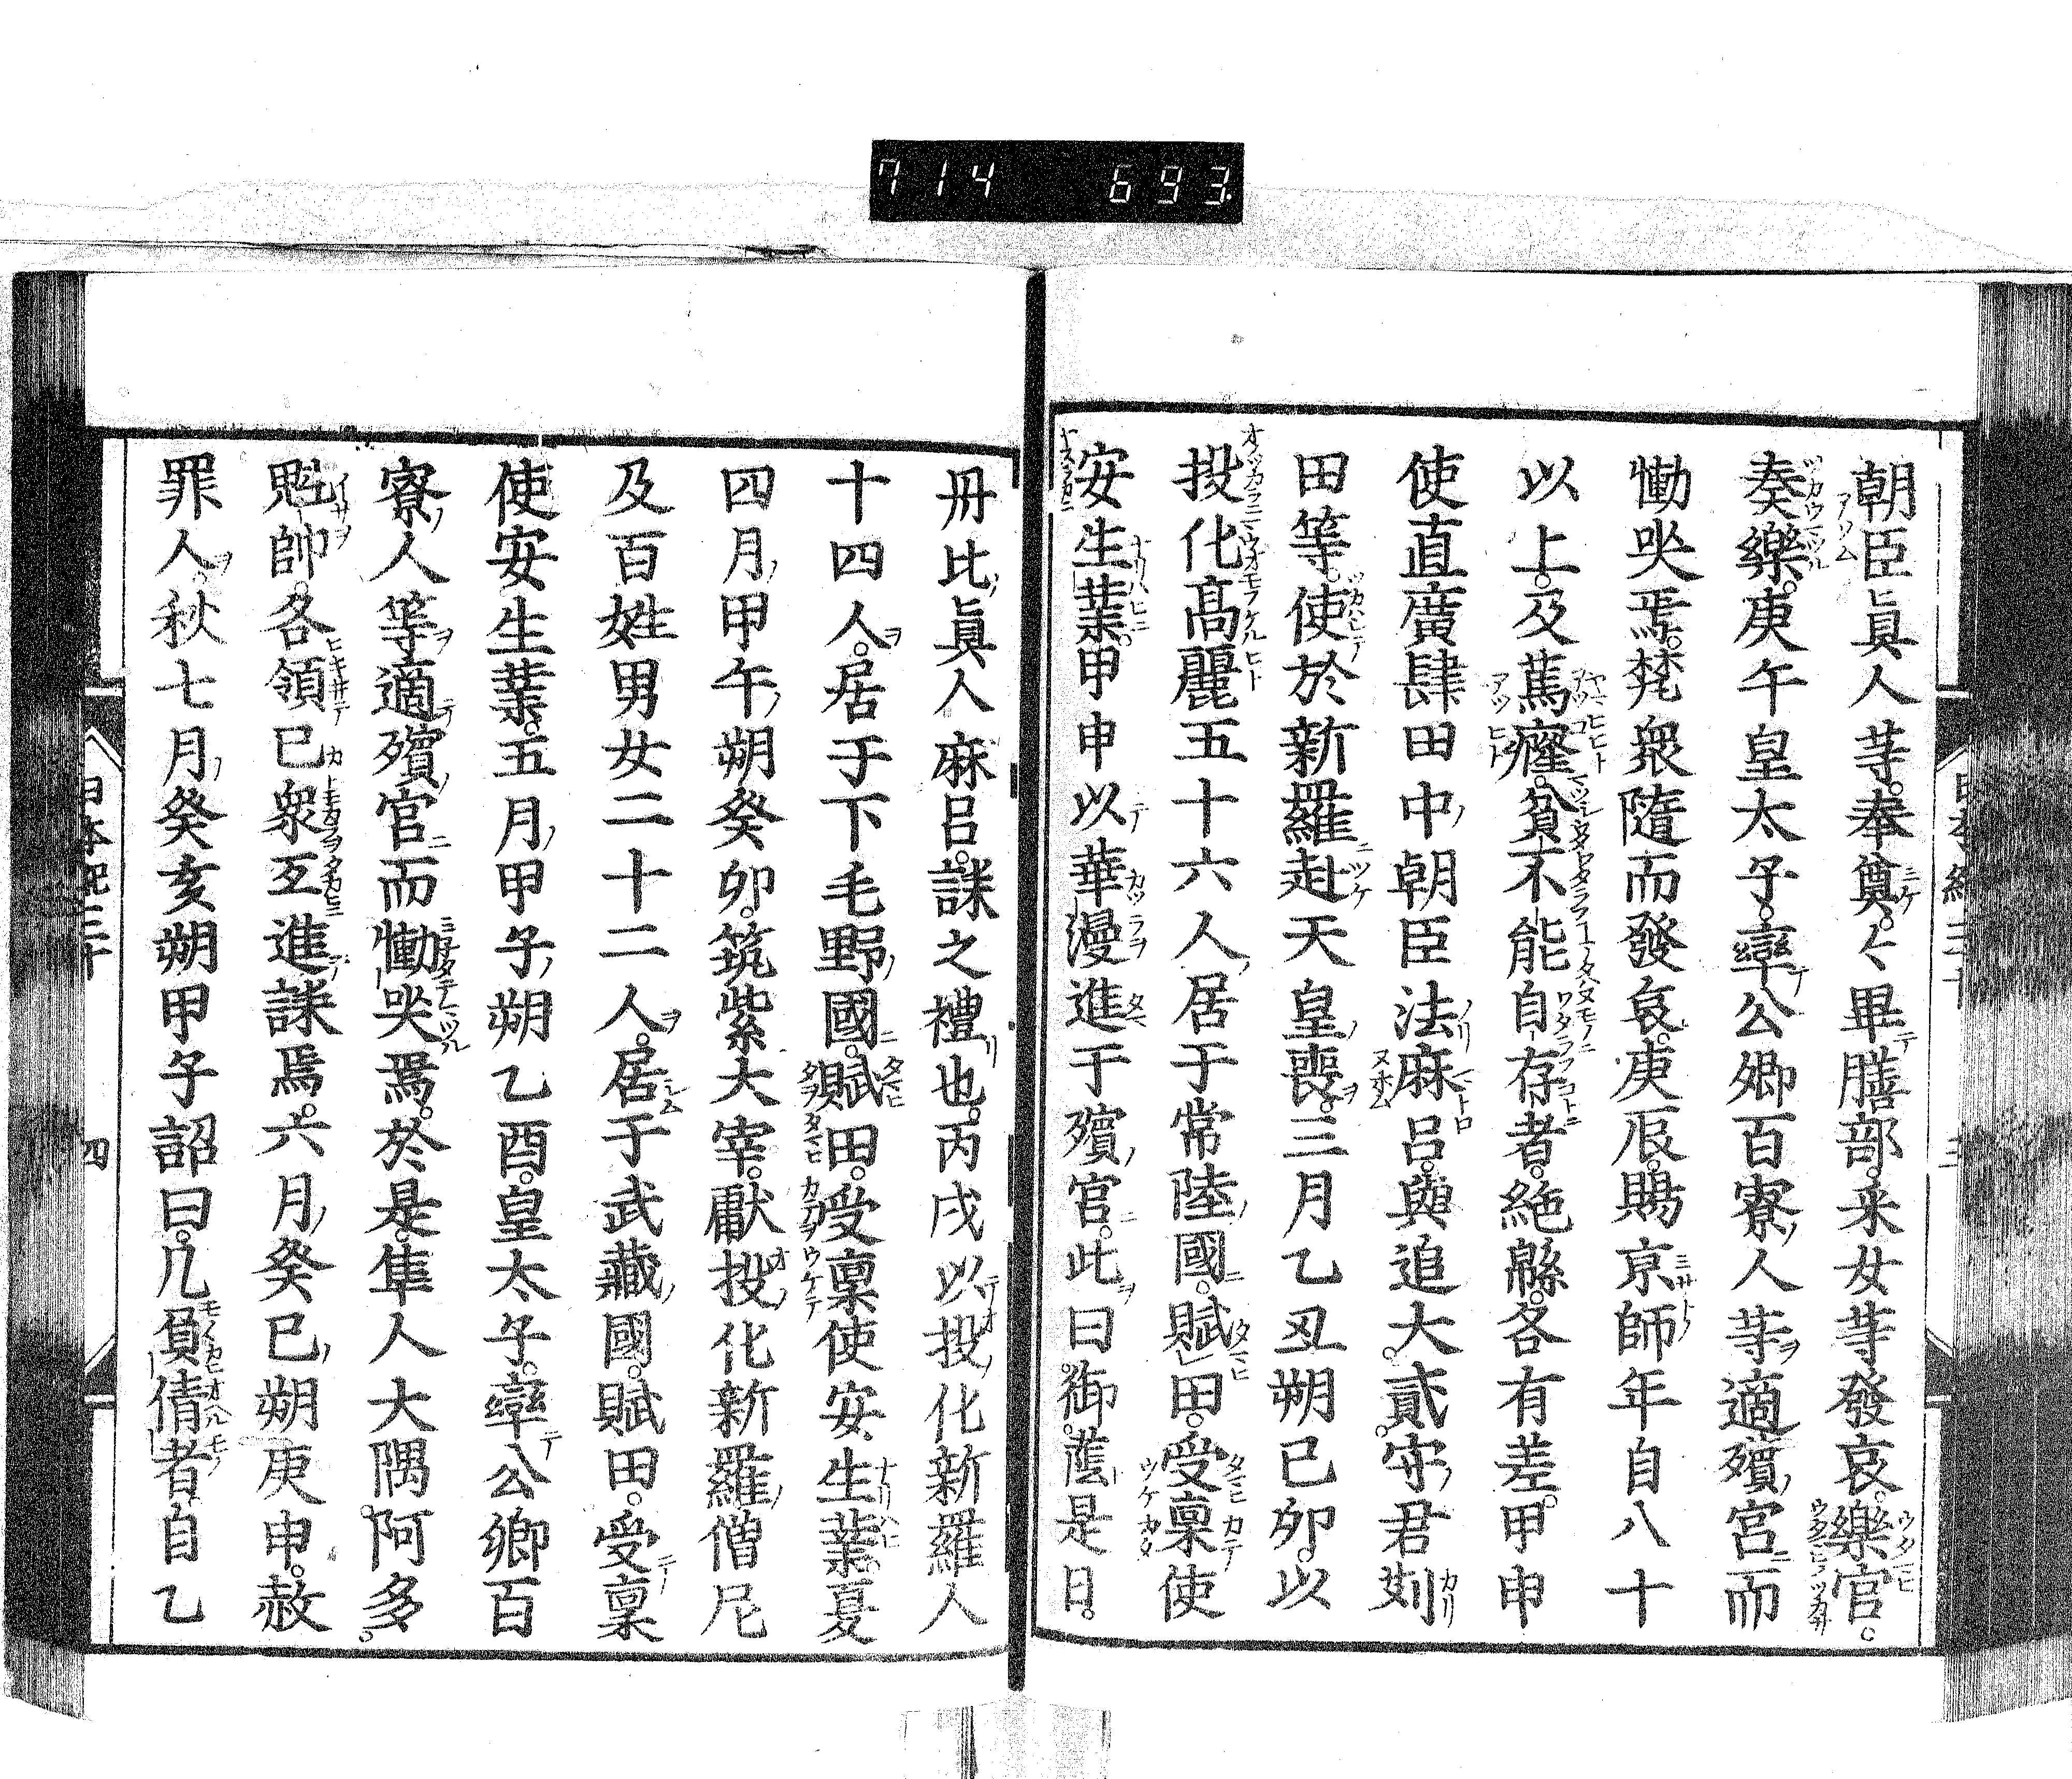 714 693
朝臣眞人等。奉奠。々畢膳部。采女等發哀。樂官。
奏樂。庚午皇太子。率公卿百寮人等適殯宮而
慟哭焉。梵衆隨而發哀。庚辰。賜京師年自八十
以上。及篤癃。貧不能自存者。絁綿。各有差。甲申
使直廣肆田中朝臣法麻呂。與追大。貳。守君苅
田等。使於新羅赴天皇喪。三月乙丑朔己卯。以
投化高麗五十六人居于常陸國。賦田。受稟使
安生業。甲申以華漫進于殯宮。此曰。御蔭是日。
丹比眞人麻呂。誄之禮也。丙戌以投化新羅人
十四人。居于下毛野國。賦田。受稟使安生業。夏
四月甲午朔癸卯。筑紫大宰。獻投化新羅僧尼
及百姓男女二十二人。居于武藏國。賦田。受稟
使安生業。五月甲子朔乙酉。皇太子。率公卿百
寮人等適殯宮而慟哭焉。於是。隼人大隅。阿多。
魁帥。各領已衆互進誄焉。六月癸巳朔庚申。赦
罪人。秋七月癸亥朔甲子詔曰。凡負債者自乙
日本紀三十
四